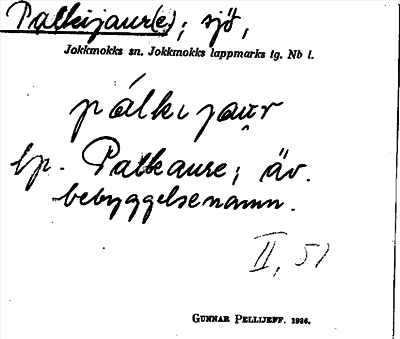 Palkijaur(e); sjö,
Jokkmokks sn. Jokkmokks lappmarks tg. Nb l.
pálkijau̯r
hp. Palkaure; äv.
bebyggelsenamn.
II, 51
GUNNAR PELLIJEFF. 1936.